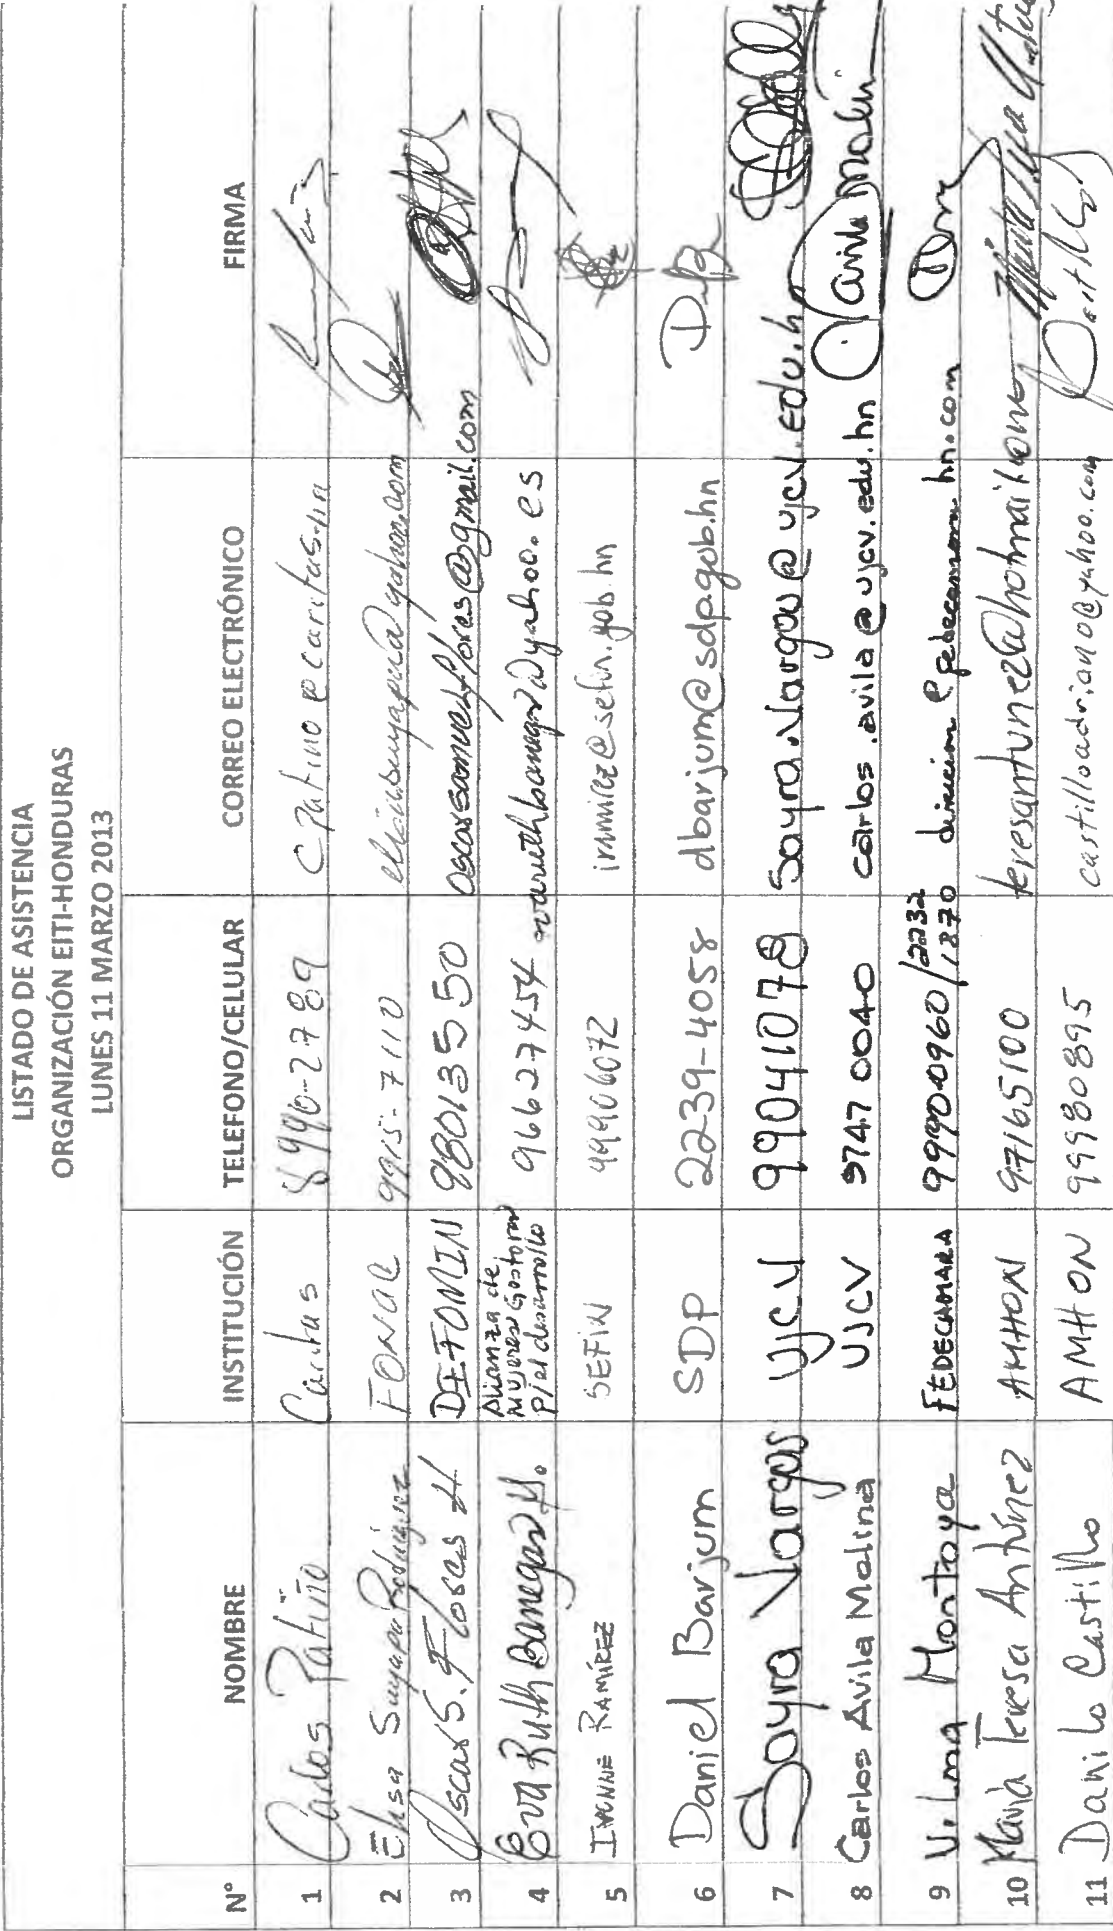 LISTADO DE ASISTENCIA
ORGANIZACIÓN EITI-HONDURAS
LUNES 11 MARZO 2013
N° NOMBRE INSTITUCIÓN TELEFONO/CELULAR CORREO ELECTRÓNICO FIRMA
1 Carlos Patiño Cáritas 8990-2789 cpatino@caritas.hn
2 Elisa Suyapa Rodríguez FONAC 9915-7110
3 Oscar S. Flores H DEFOMIN 98013550 oscarsamuelflores@gmail.com
4 Eva Ruth Banegas M. Alianza de Mujeres Gestoras p/el desarrollo 96627454 evaruthbanegas@yahoo.es
5 IVONNE RAMÍREZ SEFIN 99906072 iramirez@sefin.gob.hn
6 Daniel Barjum SDP 2239-4058 dbarjum@sdp.gob.hn
7 Sayra Vargas UJCV 99041078 Sayra.Vargas@ujcv.edu.hn
8 Carlos Avila Molina UJCV 9747 0040 carlos.avila@ujcv.edu.hn
9 Vilma Montoya FEDECAMARA 99900960/2232 1870 direccion@fedecamarahn.com
10 María Teresa Antúnez AMHON 97165100 teresantunez@hotmail
11 Danilo Castillo AMHON 99980895 castilloadriano@yahoo.com